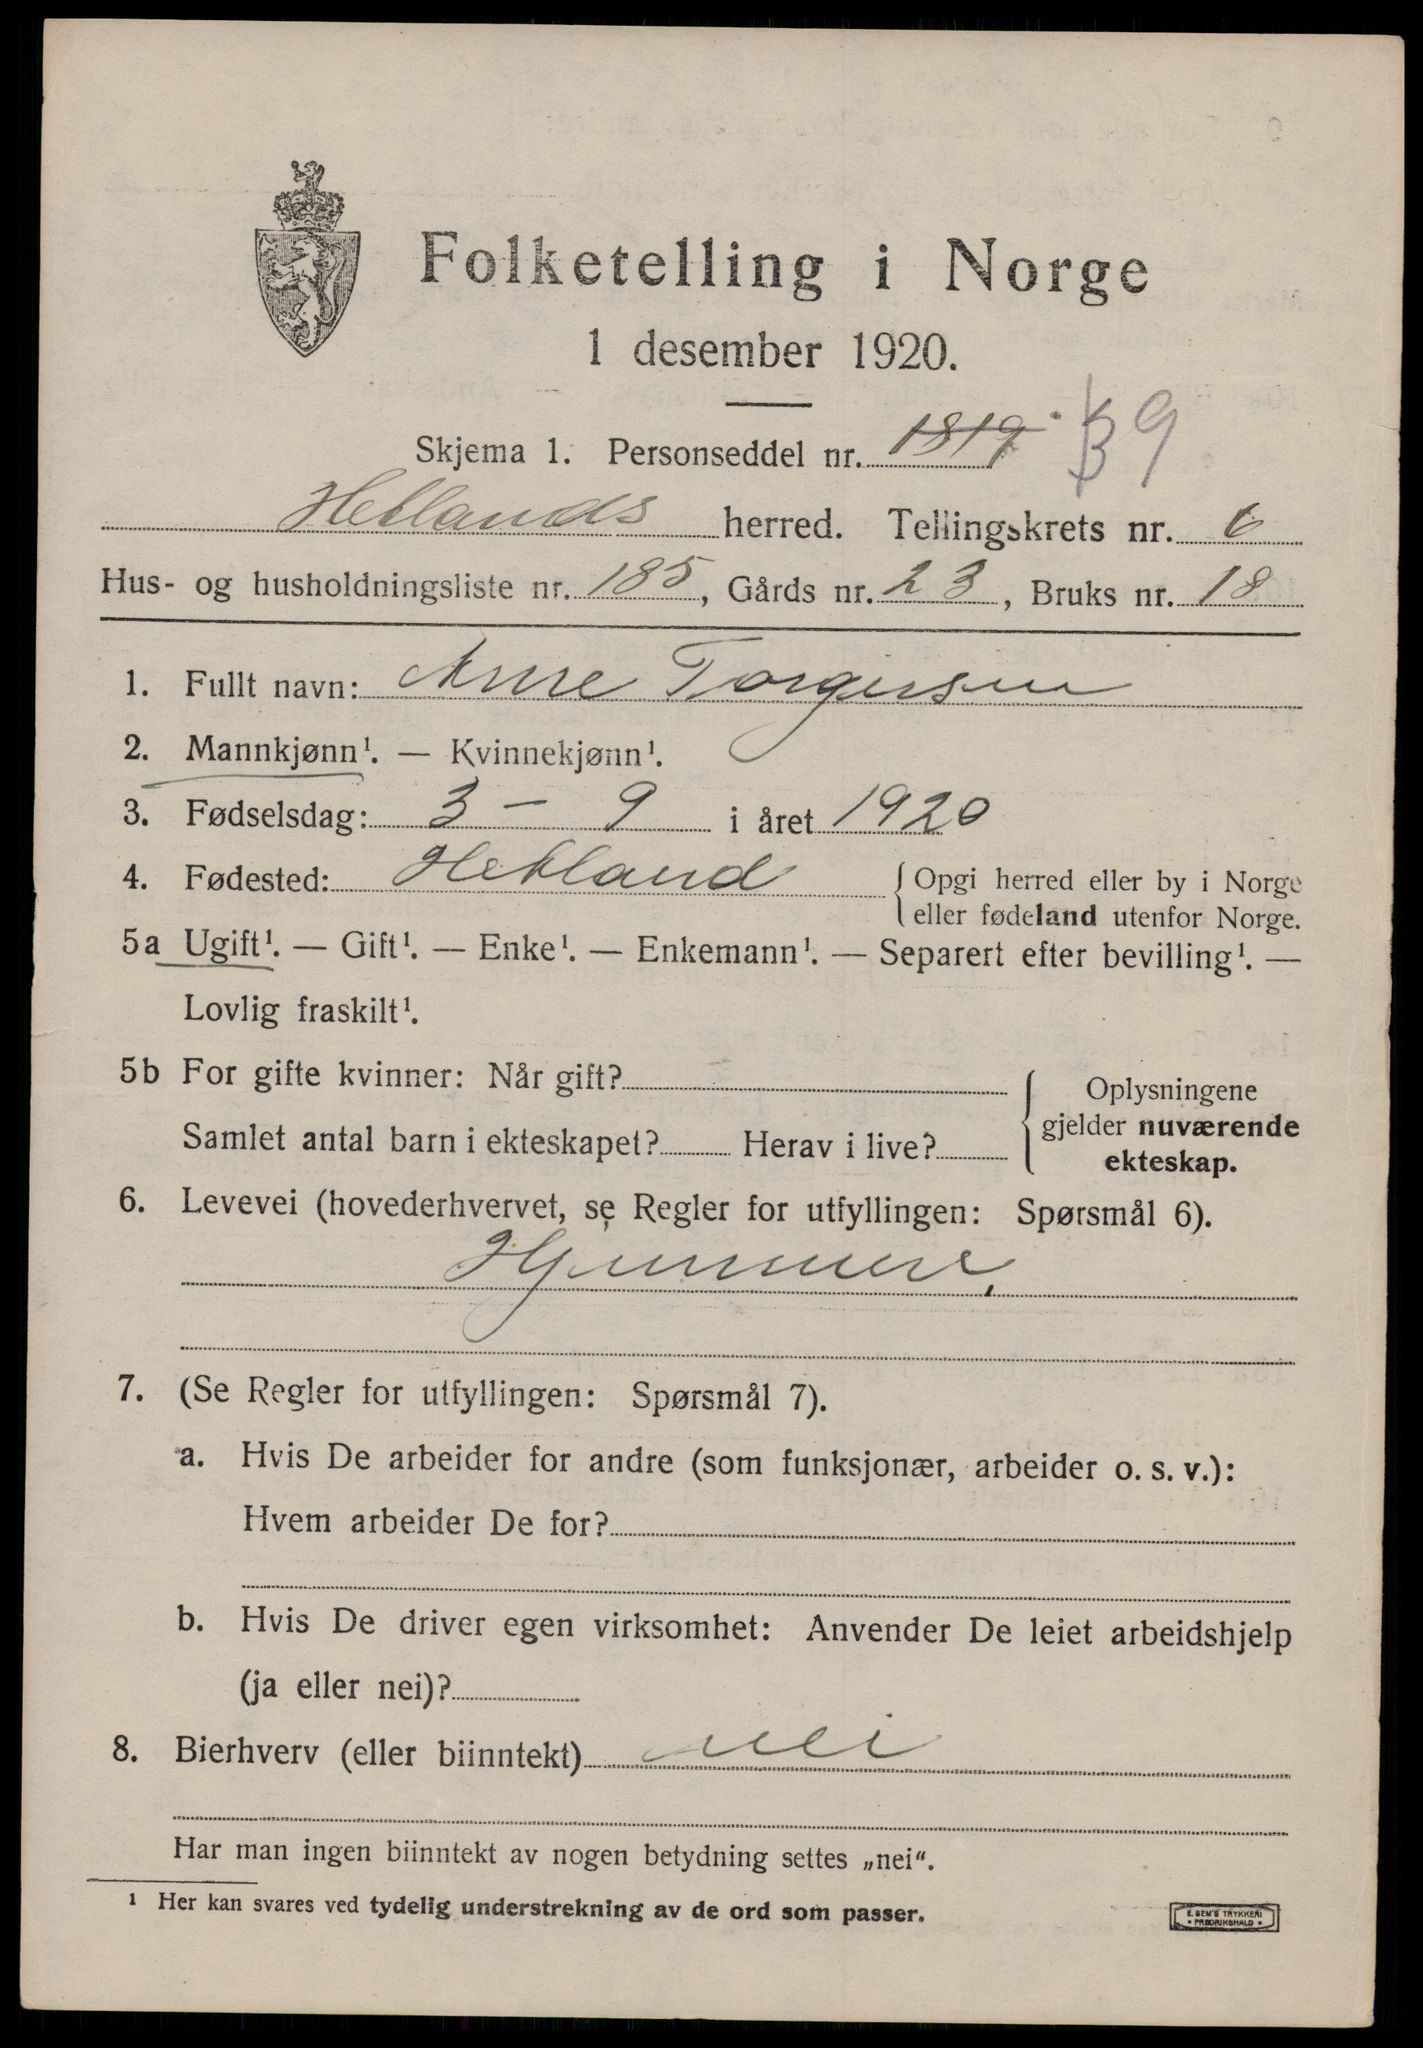 Folketelling i Norge
1 desember 1920.
Skjema 1. Personseddel nr. 1819 9
Hetlands herred. Tellingskrets nr. 6
Hus- og husholdningsliste nr. 185, Gårds nr. 23, Bruks nr. 18
1. Fullt navn: Arne Torgersen
2. Mannkjønn¹. — Kvinnekjønn¹.
3. Fødselsdag: 3 – 9 i året 1920
4. Fødested: Hetland { Opgi herred eller by i Norge
eller fødeland utenfor Norge.
5a Ugift¹. — Gift¹. — Enke¹. — Enkemann¹. — Separert efter bevilling¹. —
Lovlig fraskilt¹.
5b For gifte kvinner: Når gift?
Samlet antal barn i ekteskapet? Herav i live?
{ Oplysningene
gjelder nuværende
ekteskap.
6. Levevei (hovederhvervet, se Regler for utfyllingen: Spørsmål 6).
Hjemmeve.
7. (Se Regler for utfyllingen: Spørsmål 7).
a. Hvis De arbeider for andre (som funksjonær, arbeider o. s. v.):
Hvem arbeider De for?
b. Hvis De driver egen virksomhet: Anvender De leiet arbeidshjelp
(ja eller nei)?
8. Bierhverv (eller biinntekt) nei
Har man ingen biinntekt av nogen betydning settes „nei“.
¹ Her kan svares ved tydelig understrekning av de ord som passer.
E. SEM'S TRYKKERI
• FREDRIKSHALD •